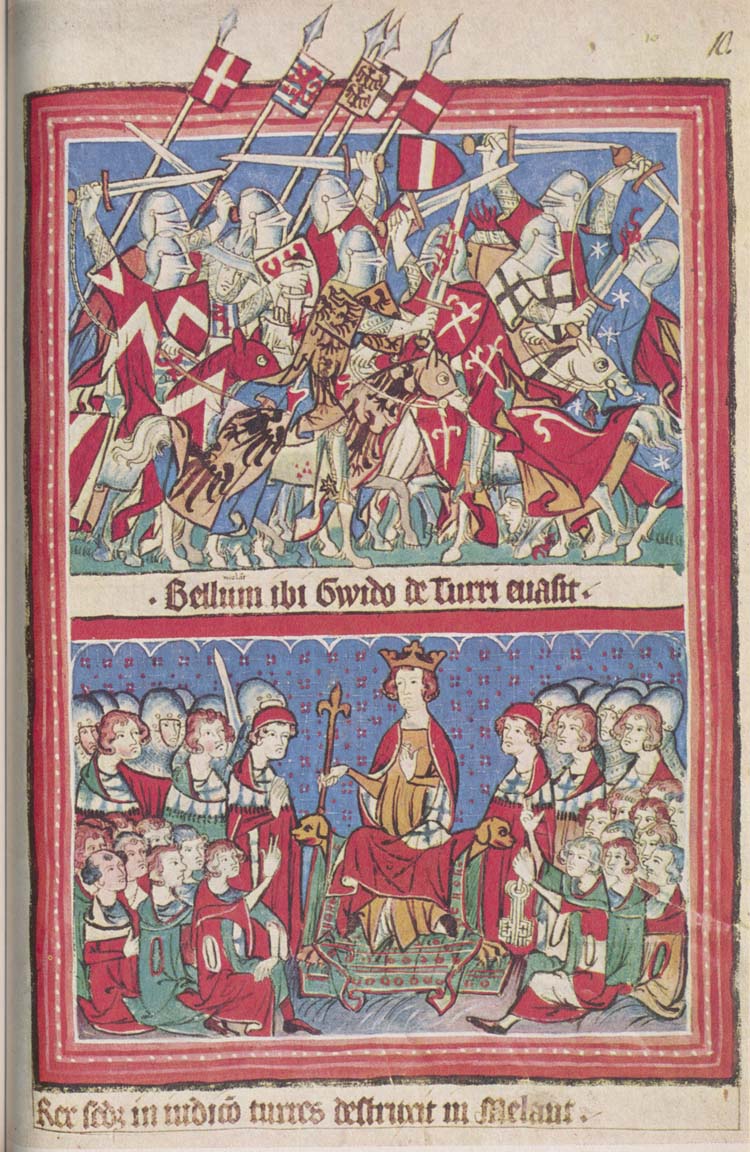 10
10.
· Bellum ibi Gwido de Turri evasit ·
Rex sedz in iudicō turres destruxit in Melant ·